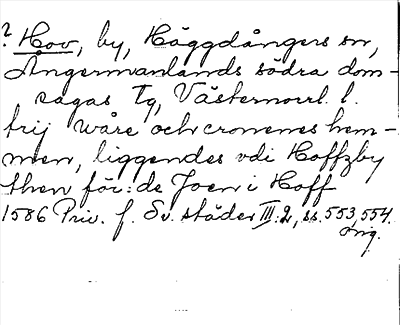 ? Hov, by, Häggdångers sn,
Ångermanlands södra dom-
sagas tg, Västernorrl. l.
trij wåre och cronenes hem-
men, liggendes vdi Hoffzby
then för:de Joen i Hoff
1586 Priv. f. Sv. städer III:2, ss. 553, 554.
Orig.